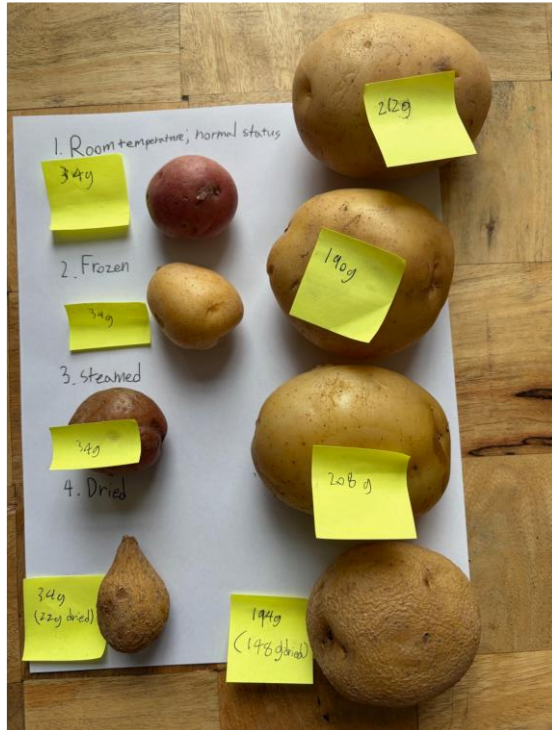 212g
1. Room temperature; normal status
34g
190g
2. Frozen
34g
3. Steamed
34g
208 g
4. Dried
34g
(22g dried)
194g
(148g dried)